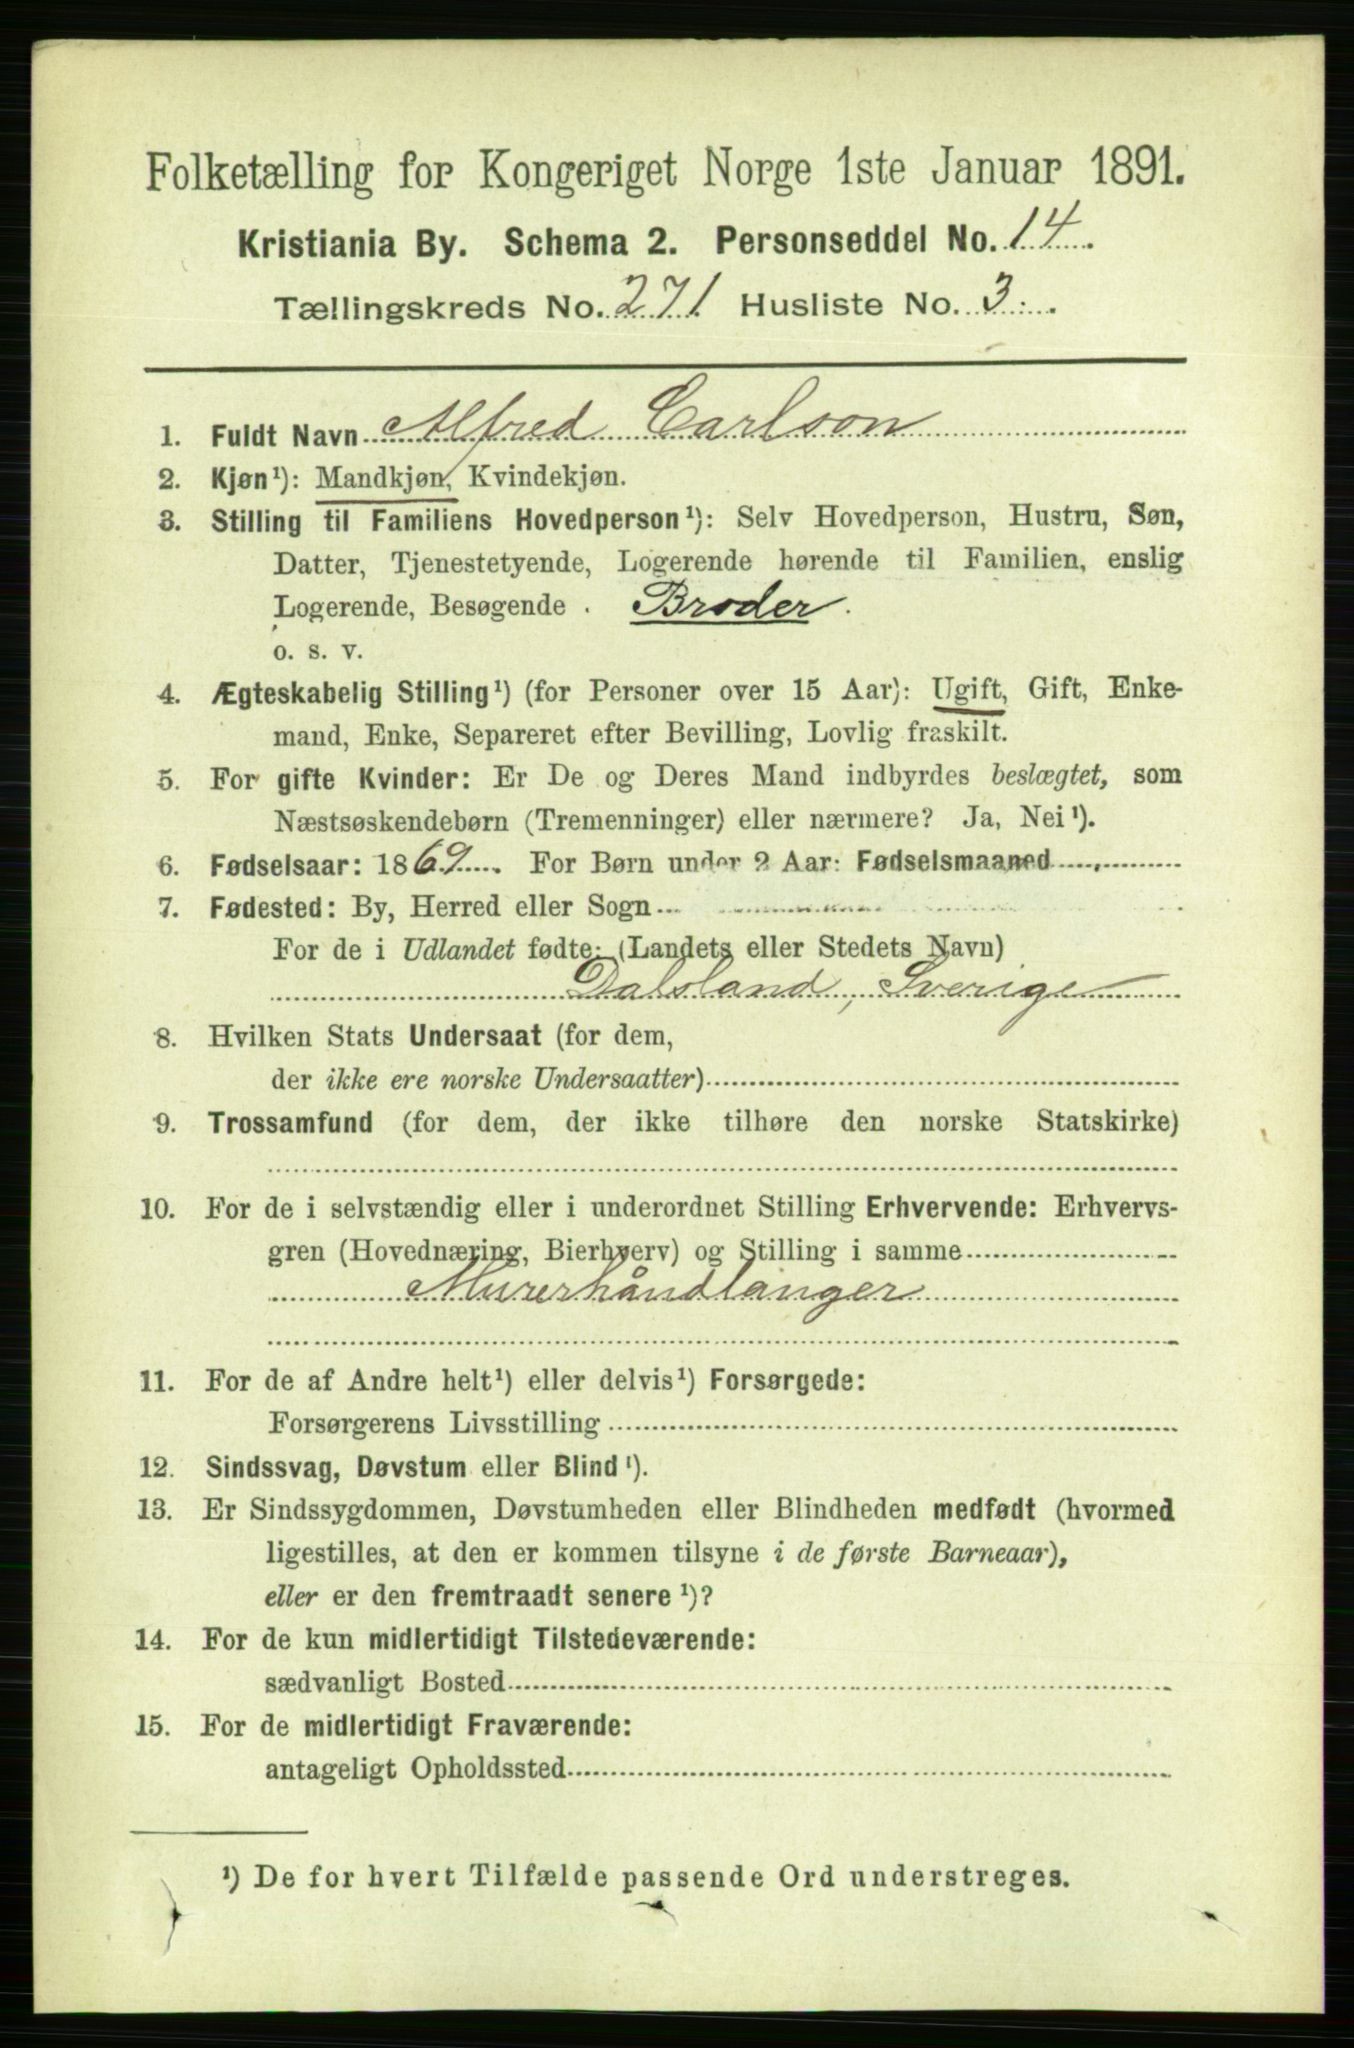 Folketælling for Kongeriget Norge 1ste Januar 1891.
Kristiania By. Schema 2. Personseddel No. 14.
Tællingskreds No. 271 Husliste No. 3.
1. Fuldt Navn Alfred Carlson
2. Kjøn¹): Mandkjøn, Kvindekjøn.
3. Stilling til Familiens Hovedperson¹): Selv Hovedperson, Hustru, Søn,
Datter, Tjenestetyende, Logerende hørende til Familien, enslig
Logerende, Besøgende . Broder.
o. s. v.
4. Ægteskabelig Stilling¹) (for Personer over 15 Aar): Ugift, Gift, Enke-
mand, Enke, Separeret efter Bevilling, Lovlig fraskilt.
5. For gifte Kvinder: Er De og Deres Mand indbyrdes beslægtet, som
Næstsøskendebørn (Tremenninger) eller nærmere? Ja, Nei¹).
6. Fødselsaar: 1869. For Børn under 2 Aar: Fødselsmaaned
7. Fødested: By, Herred eller Sogn
For de i Udlandet fødte: (Landets eller Stedets Navn)
Dalsland, Sverige
8. Hvilken Stats Undersaat (for dem,
der ikke ere norske Undersaatter)
9. Trossamfund (for dem, der ikke tilhøre den norske Statskirke)
10. For de i selvstændig eller i underordnet Stilling Erhvervende: Erhvervs-
gren (Hovednæring, Bierhverv) og Stilling i samme
Murerhåndlanger
11. For de af Andre helt¹) eller delvis¹) Forsørgede:
Forsørgerens Livsstilling
12. Sindssvag, Døvstum eller Blind¹).
13. Er Sindssygdommen, Døvstumheden eller Blindheden medfødt (hvormed
ligestilles, at den er kommen tilsyne i de første Barneaar),
eller er den fremtraadt senere¹)?
14. For de kun midlertidigt Tilstedeværende:
sædvanligt Bosted
15. For de midlertidigt Fraværende:
antageligt Opholdssted
¹) De for hvert Tilfælde passende Ord understreges.